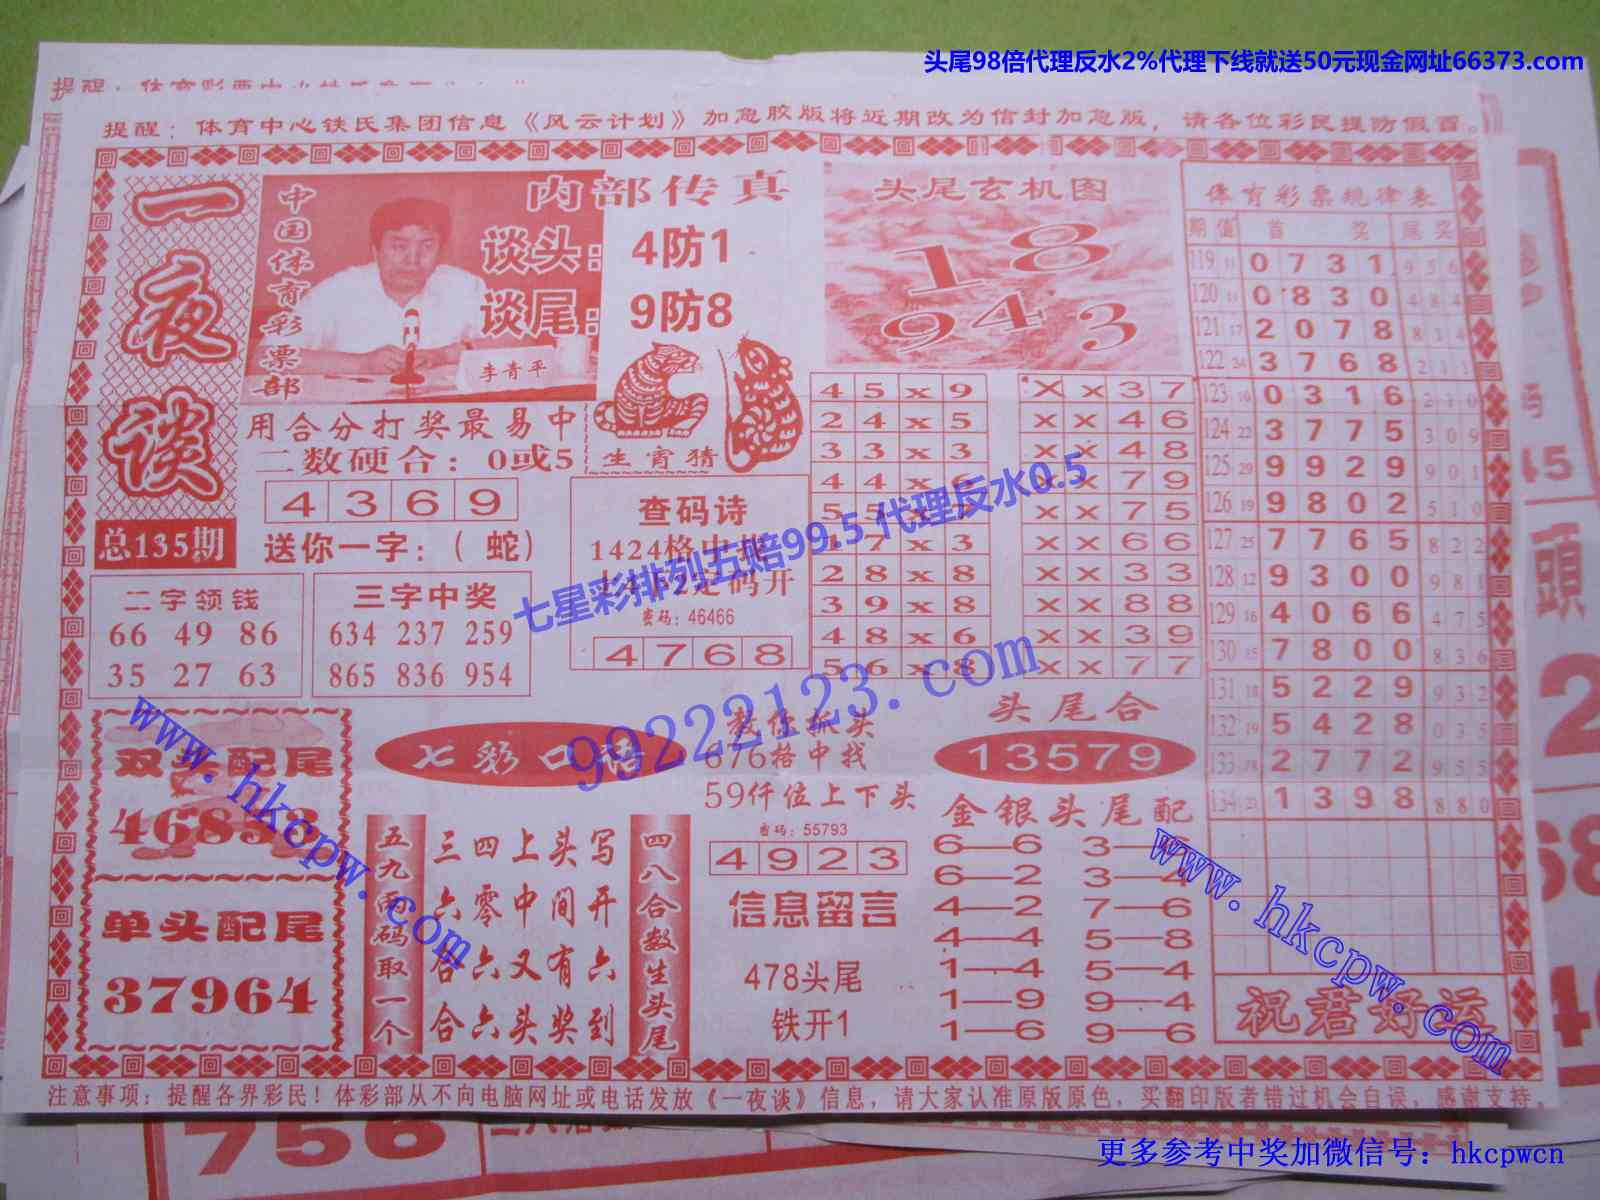 头尾98倍代理反水2%代理下线就送50元现金网址66373.com
提醒：体育中心铁氏集团信息《风云计划》加急胶版将近期改为信封加急版，请各位彩民提防假冒。
一夜谈
总135期
中国体育彩票部
李青平
内部传真
谈头：4防1
谈尾：9防8
用合分打奖最易中
二数硬合：0或5
4 3 6 9
送你一字：（蛇）
生宵猜
头尾玄机图
1 8
9 4 3
查码诗
1424格中
定码开
密码：46466
4 7 6 8
二字领钱
66 49 86
35 27 63
三字中奖
634 237 259
865 836 954
4 5 x 9
2 4 x 5
3 3 x 3
4 4 x
2 8 x 8
3 9 x 8
4 8 x 6
5 6 x 8
X x 3 7
x x 4 6
x x 4 8
x x 7 9
x x 7 5
x x 6 6
x x 3 3
x x 8 8
x x 3 9
x x 7 7
体育彩票规律表
期 值 首 奖 尾 奖
119 11 0 7 3 1 9 5 6
120 11 0 8 3 0 4 8 4
121 17 2 0 7 8 8 1 4
122 24 3 7 6 8 2 1 1
123 10 0 3 1 6 2 1 0
124 22 3 7 7 5 3 0 9
125 29 9 9 2 9 9 0 1
126 19 9 8 0 2 5 1 0
127 25 7 7 6 5 8 2 2
128 12 9 3 0 0 9 8 1
129 16 4 0 6 6 4 7 5
130 15 7 8 0 0 8 3 6
131 18 5 2 2 9 9 3 2
132 19 5 4 2 8 0 3 5
133 18 2 7 7 2 9 5 5
134 21 1 3 9 8 8 8 0
祝君好运
双头配尾
单头配尾
37964
七彩口
五九两码取一个
三四上头写
六零中间开
合六又有六
合六头奖到
四八合数生头尾
教你抓头
676格中找
59仟位上下头
密码：55793
4 9 2 3
信息留言
478头尾
铁开1
头尾合
13579
金银头尾配
6—6
6—2 3—4
4—2 7—6
4—4 5—8
1—4 5—4
1—9 9—4
1—6 9—6
注意事项：提醒各界彩民！体彩部从不向电脑网址或电话发放《一夜谈》信息，请大家认准原版原色，买翻印版者错过机会自误，感谢支持。
七星彩排列五赔99.5 代理反水0.5
99222123.com
www.hkcpw.com
www.hkcpw.com
756
更多参考中奖加微信号：hkcpwcn